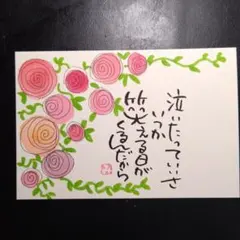 泣いたっていいさ
いつか
笑える日が
くるんだから